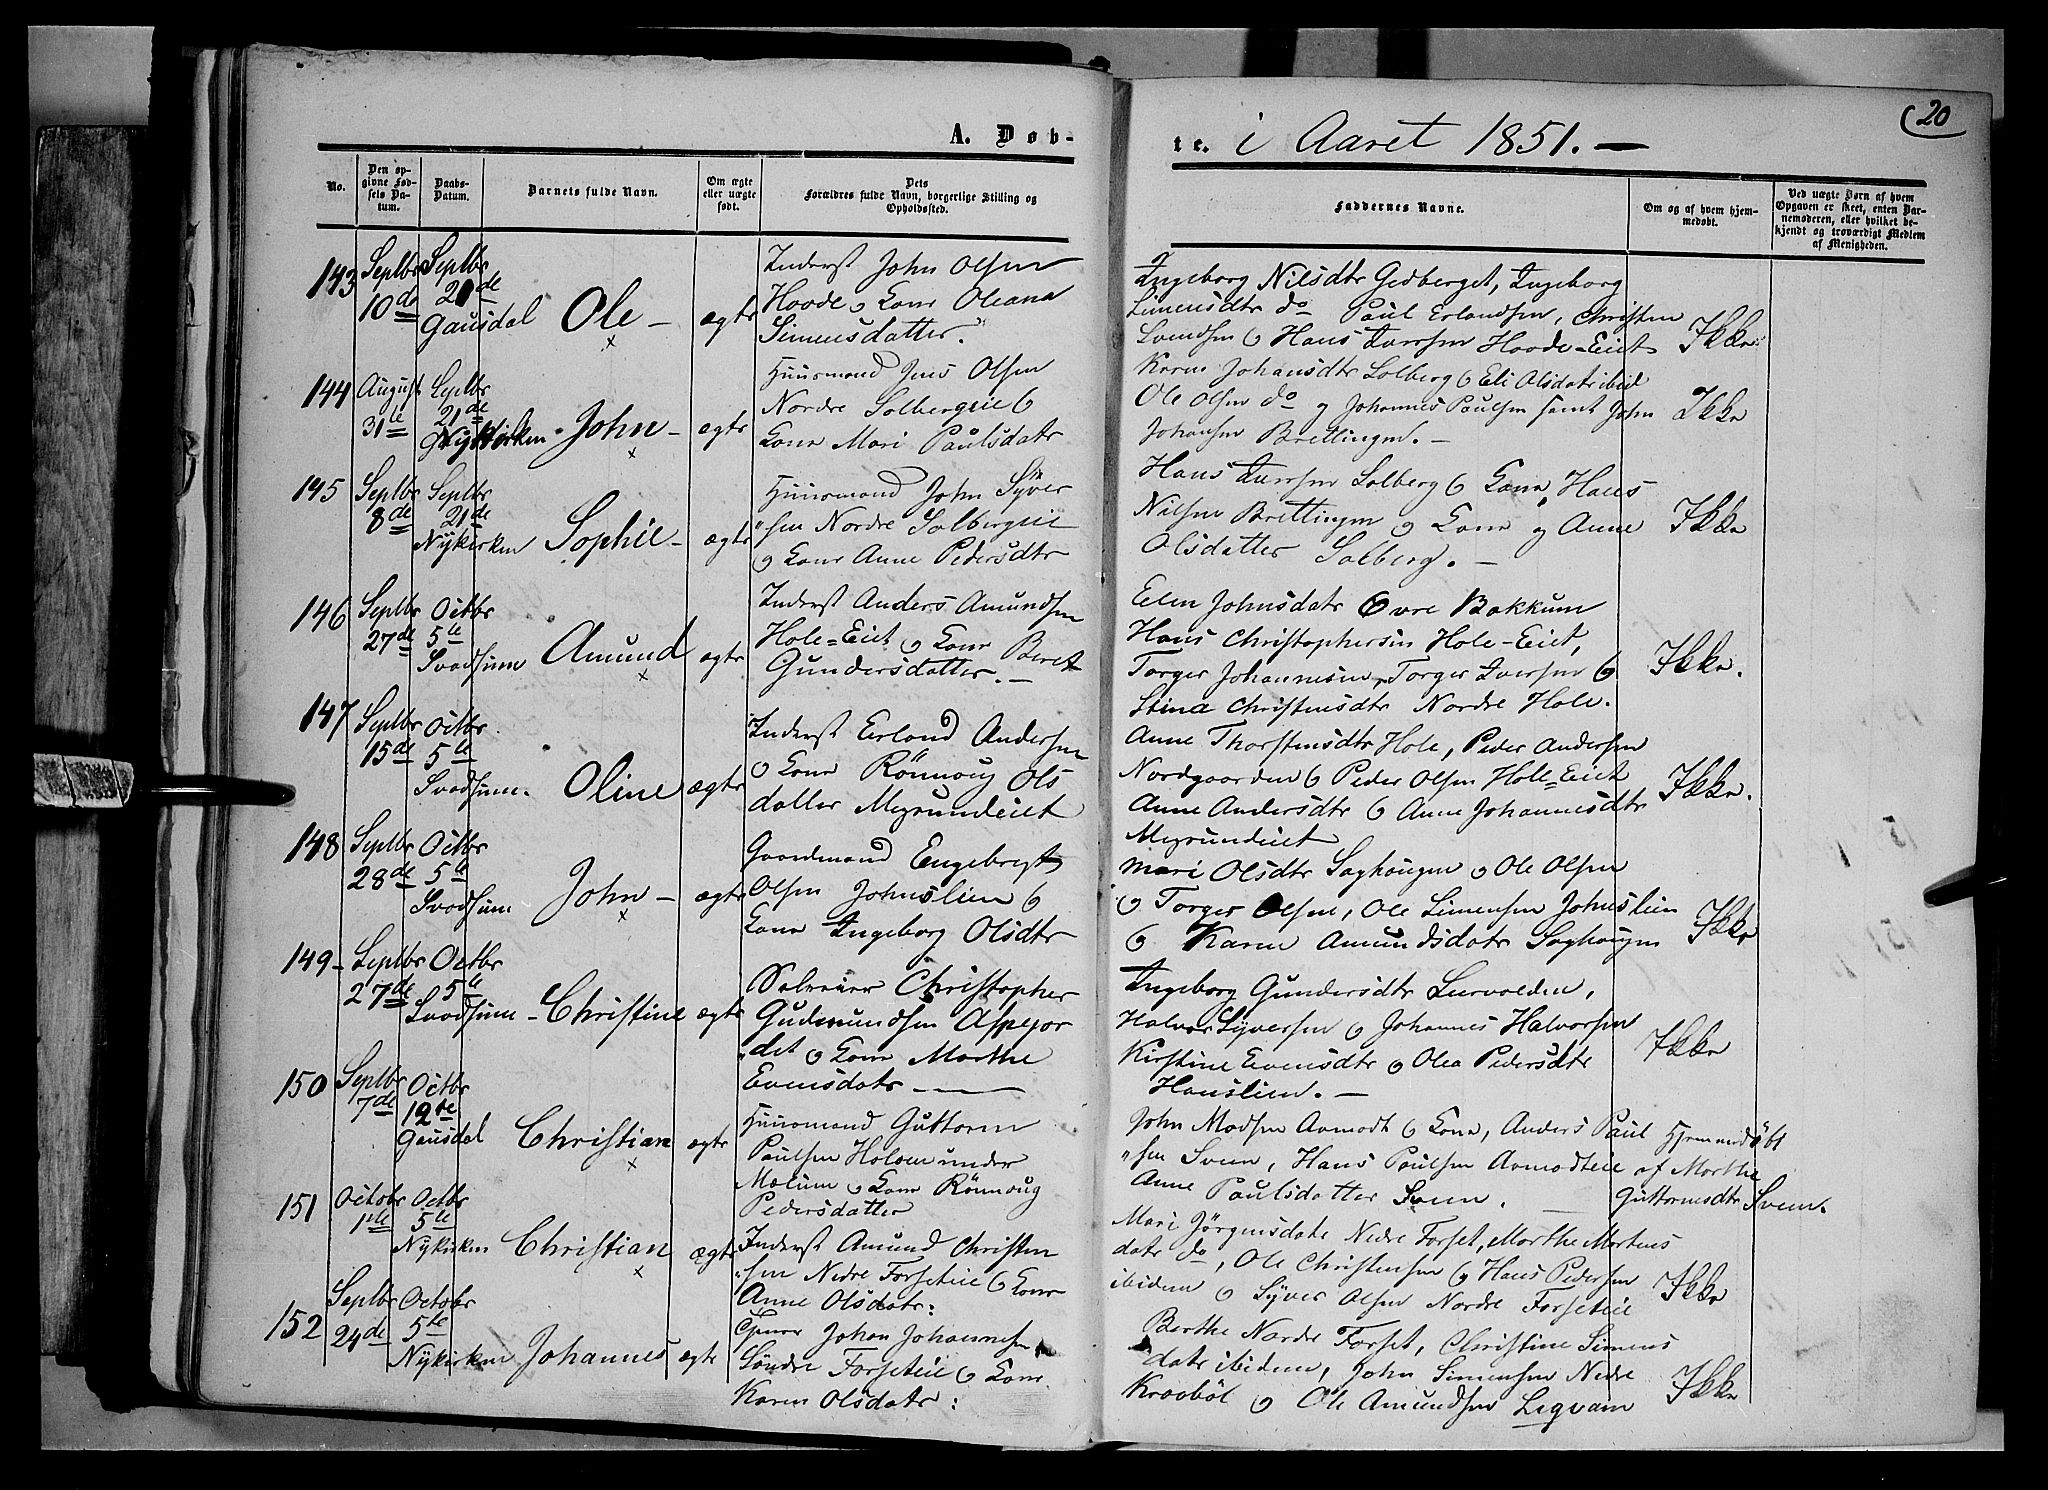 20
A. Døb-
te. i Aaret 1851. —
No.
Den op-
givne Fød-
sels Da-
tum.
Daabs-
Datum.
Barnets fulde Navn.
Om ægte
eller uægte
født.
Dets
Forældres fulde Navn, borgerlige Stilling og
Opholdssted.
Faddernes Navne.
Om og af hvem hjem-
medøbt.
Ved uægte Børn af hvem
Opgaven er skeet, enten Bar-
nemoderen, eller hvilket be-
kjendt og troværdigt Medlem
af Menigheden.
143
Septbr
10de
Septbr
21de
Gausdal
Ole —
ægte
Inderst John Olsen
Hoode og Kone Oleana
Simensdatter.
Ingeborg Nilsdtr Gedberget, Ingeborg
Simensdtr do Paul Erlandsen, Christen
Svendsen og Hans Iversen Hoode-Eiet
Ikke
144
August
31te
Septbr
21de
Nykirken
John —
ægte
Huusmand Jens Olsen
Nordre Solbergeie og
Kone Mari Paulsdatr
Karen Johansdtr Solberg og Eli Olsdatr ibid
Ole Olsen do og Johannes Paulsen samt John
Johansen Brettingen. —
Ikke
145
Septbr
8de
Septbr
21de
Nykirken
Sophie —
ægte
Huusmand John Syver
"sen Nordre Solbergeie
og Kone Anne Pedersdtr
Hans Iversen Solberg og Kone, Hans
Nilsen Brettingen og Kone og Anne
Olsdatter Solberg. —
Ikke
146
Septbr
27de
Octbr
5te
Svadsum
Amund
ægte
Inderst Anders Amundsen
Hole=Eiet og Kone Beret
Gundersdatter. —
Elen Johnsdatr Øvre Bakkum
Hans Christophersen Hole-Eiet,
Torger Johannesen, Torger Iversen og
Stina Christensdtr Nordre Hole.
Ikke.
147
Septbr
15de
Octbr
5te
Svadsum.
Oline
ægte
Inderst Erland Andersen
og Kone Rönnoug Ols
datter Myrundeiet
Anne Thorstensdtr Hole, Peder Andersen
Nordgaarden og Peder Olsen Hole=Eiet
Anne Andersdtr og Anne Johannesdtr
Myrundeiet
Ikke.
148
Septbr
28de
Octbr
5te
Svadsum
John —
ægte
Gaardmand Engebregt
Olsen Johnslien og
Kone Ingeborg Olsdtr
Mari Olsdtr Saghougen og Ole Olsen
og Torger Olsen, Ole Simensen Johnslien
og Karen Amundsdatr Saghougen
Ikke
149 —
Septbr
27de
Octbr
5te
Svadsum —
Christine
ægte
Selveier Christopher
Gudmundsen Aspejor
"det og Kone Marthe
Evensdatr —
Ingeborg Gundersdtr
Halvor Syversen og Johannes Halvorsen
Kirstine Evensdtr og Olea Pedersdtr
Hanslien. —
Ikke
150
Septbr
7de
Octbr
12te
Gausdal
Christian
ægte
Huusmand Guttorm
Paulsen Holoen under
Mælum og Kone Rönnoug
Pedersdatter
John Madsen Aamodt og Kone, Anders Paul
"sen Sveen, Hans Paulsen Aamodteie
Anne Paulsdatter Sveen. —
Hjemmedøbt
af Marthe
Guttormsdtr Sveen.
151
Octobr
1ste
Octbr
5te
Nykirken
Christian
ægte
Inderst Amund Christen
"sen Nedre Forseteie og Kone
Anne Olsdatr:
Mari Jörgensdatr Nedre Forset, Marthe Mortens
datr do, Ole Christensen og Hans Pedersen
ibidem og Syver Olsen Nordre Forseteie
Ikke
152
Septbr
24de
Octobr
5te
Nykirken
Johannes
ægte
Johan Johannesen
Söndre Forseteie og Kone
Karen Olsdatr:
Berthe Nordre Forset, Christine Simens
datr ibidem, John Simensen Nedre
Kraabøl og Ole Amundsen Legvam
Ikke